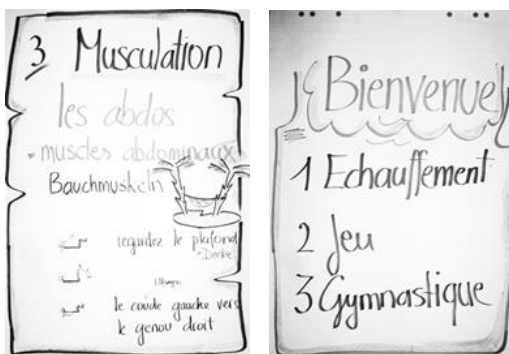 3 Musculation
les abdos
= muscles abdominaux
Bauchmuskeln
regardez le plafond
= Decke
le coude gauche vers
le genou droit
Bienvenue
1 Echauffement
2 Jeu
3 Gymnastique